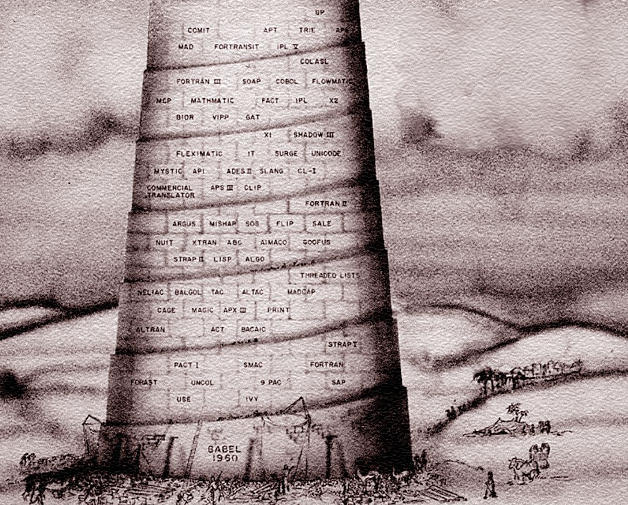 UP
COMIT APT TRIE
MAD FORTRANSIT IPL V
COLASL
FORTRAN III SOAP COBOL FLOWMATIC
MCP MATHMATIC FACT IPL X2
BIOR VIPP GAT
X1 SHADOW III
FLEXIMATIC IT SURGE UNICODE
MYSTIC API ADES II SLANG CL-I
COMMERCIAL APS III CLIP
TRANSLATOR
FORTRAN II
ARGUS MISHAP SOS FLIP SALE
NUIT XTRAN ABC AIMACO GOOFUS
STRAP II LISP ALGO
THREADED LISTS
NELIAC BALGOL TAC ALTAC MADCAP
CAGE MAGIC APX III PRINT
ALTRAN ACT BACAIC
STRAP I
PACT I SMAC FORTRAN
FORAST UNCOL 9 PAC SAP
USE IVY
BABEL
1960